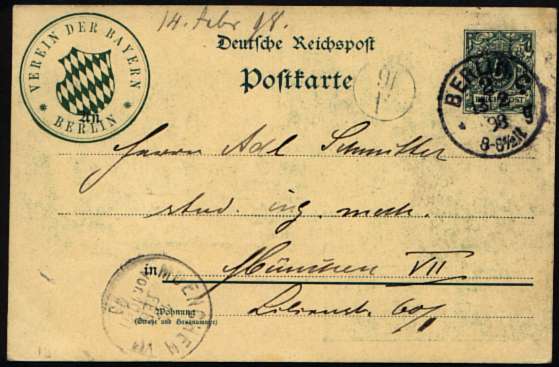 14. Febr 98.
VEREIN DER BAYERN
* BERLIN *
Deutsche Reichspost
Postkarte
An
BERLIN C
98
8-8½N
Herrn Adl Schmitter
stud. ing. mech.
in München VII
Wohnung
(Straße und Hausnummer)
Lilienstr 60/I
MUENCHEN VII